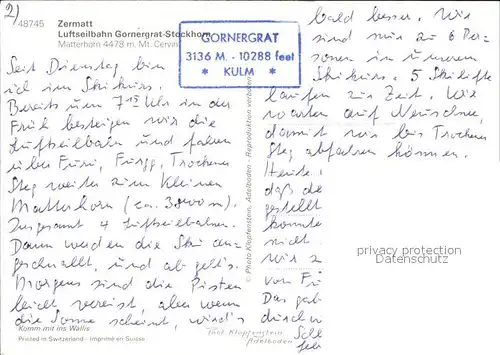 2)
48745
Zermatt
Luftseilbahn Gornergrat-Stockhorn
Matterhorn 4478 m, Mt. Cervin
GORNERGRAT
3136 M. - 10288 feet
* KULM *
Seit Dienstag bin
ich im Skikurs.
Bereits um 7 15 Uhr in der
Früh besteigen wir die
Luftseilbahn und fahren
über Furi, Furgg, Trockener
Steg weiter zum Kleinen
Matterhorn (ca. 3800 m)
Insgesamt 4 Luftseilbahnen.
Dann werden die Ski an-
geschnallt, und ab geht's.
Morgens sind die Pisten
leicht vereist, aber wenn
die Sonne scheint, wird's
Komm mit ins Wallis
Printed in Switzerland - Imprimé en Suisse
© Photo Klopfenstein, Adelboden - Reproduktion verboten
Photo Klopfenstein
Adelboden
bald besser. Wir
sind nur zu 6 Per-
sonen in unserem
Skikurs. 5 Skilifte
laufen zur Zeit. Wir
warten auf Neuschnee,
damit wir bis Trockener
Steg abfahren können.
Heute
daß die
gestellt
konnte
nicht.
wir z
von Fu
Das gab
privacy protection
Datenschutz